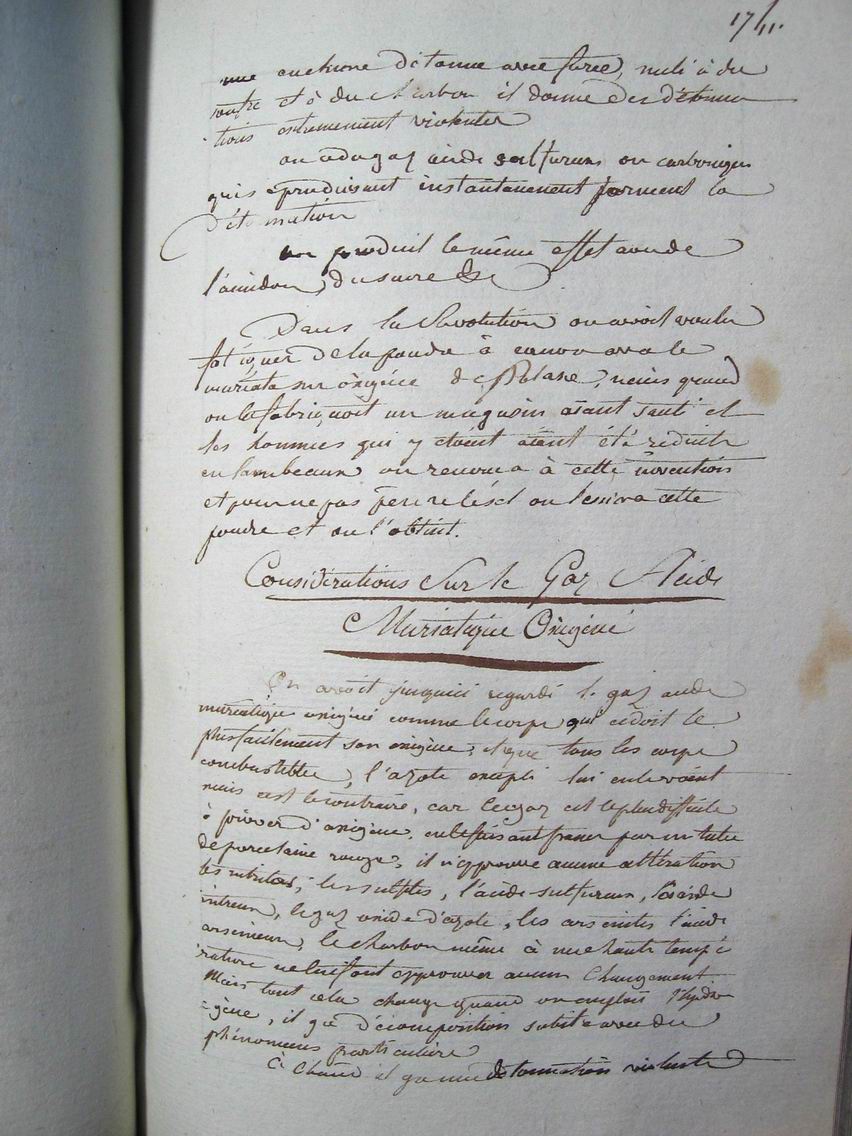 17
une enclume détonne avec force, mêlé à du
soufre et à du charbon il donne des détonna
tions extremement violentes
on a du gaz acide sulfureux ou carbonique
qui se produisant instantanement forment la
détonnation
on produit le même effet avec de
l'amidon, du sucre &c
Dans la Révolution on avoit voulu
fabriquer de la poudre à canon avec le
muriate sur oxigéné de Potasse, mais quand
on la fabriquoit un magasin aiant sauté et
les hommes qui y etoient aiant été réduits
en lambeaux on renonça à cette invention
et pour ne pas perdre le sel on lessiva cette
poudre et on l'obtint.
Considérations Sur le Gaz Acide
Muriatique Oxigéné
On avoit jusqu'ici regardé le gaz acide
muriatique oxigéné comme le corps qui cédoit le
plus facilement son oxigène, et que tous les corps
combustibles, l'azote excepté lui enlevoient
mais c'est le contraire, car ce gaz est le plus difficile
à priver d'oxigène, en le faisant passer par un tube
de porcelaine rouge, il n'éprouve aucune altération
les sulfites, l'acide sulfureux, l'acide
nitreux, le gaz oxide d'azote, les arsenites l'acide
arsenieux, le charbon même à une haute tempé
rature ne lui font epprouver aucun changement
Mais tout cela change quand on emploie l'hydro
gène, il y a décomposition subite avec des
phénomenes particuliers
à chaud il y a une détonnation violente